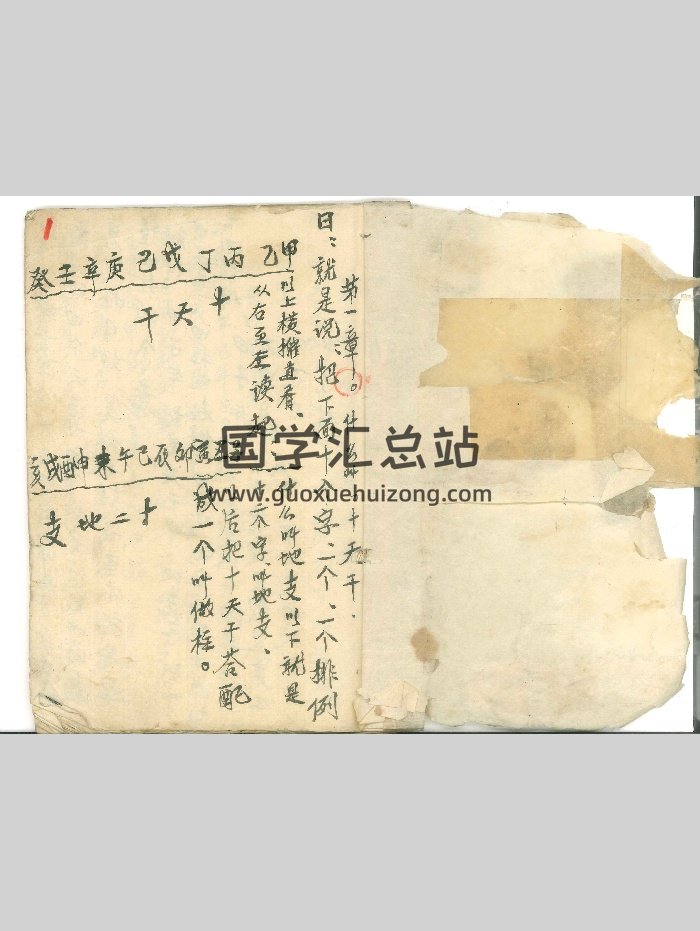 1
第一章。什么叫十天干.
曰:就是说:把下面十个字.一个、一个排例
甲乙丙丁戊己庚辛壬癸
十天干
以上横推直看、
从右至左读起
什么叫地支以下就是
十二个字、叫地支、
后把十天干荅配
成一个叫做柱。
寅卯辰巳午未申酉戌亥
十二地支
国学汇总站
www.guoxuehuizong.com